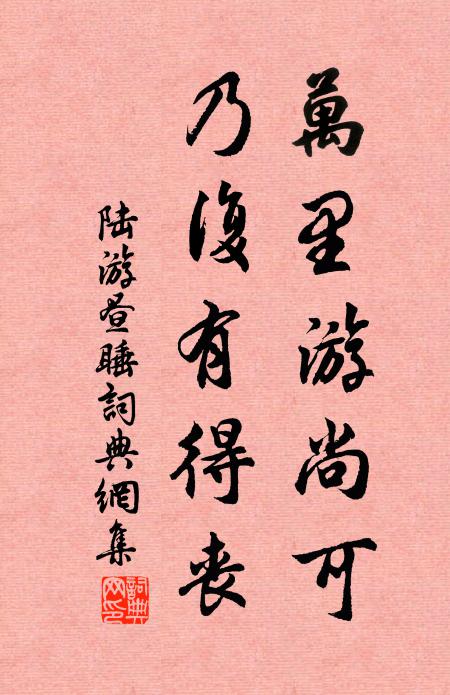 萬里游尚可
乃復有得喪
陆游昼睡詞典網集
詞典网印